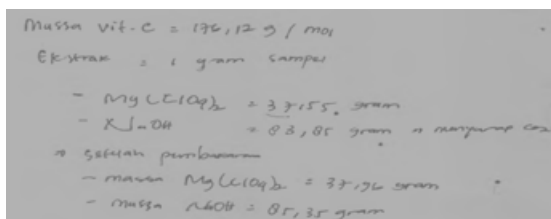 Massa vit.C = 176,12 g / mol
Ekstrak = 1 gram sampel
- Mg(ClO4)2 = 37,55. gram
- NaOH = 83,85 gram → menyerap CO2
→ setelah pembakaran
- massa Mg(ClO4)2 = 37,96 gram
- massa NaOH = 85,35 gram